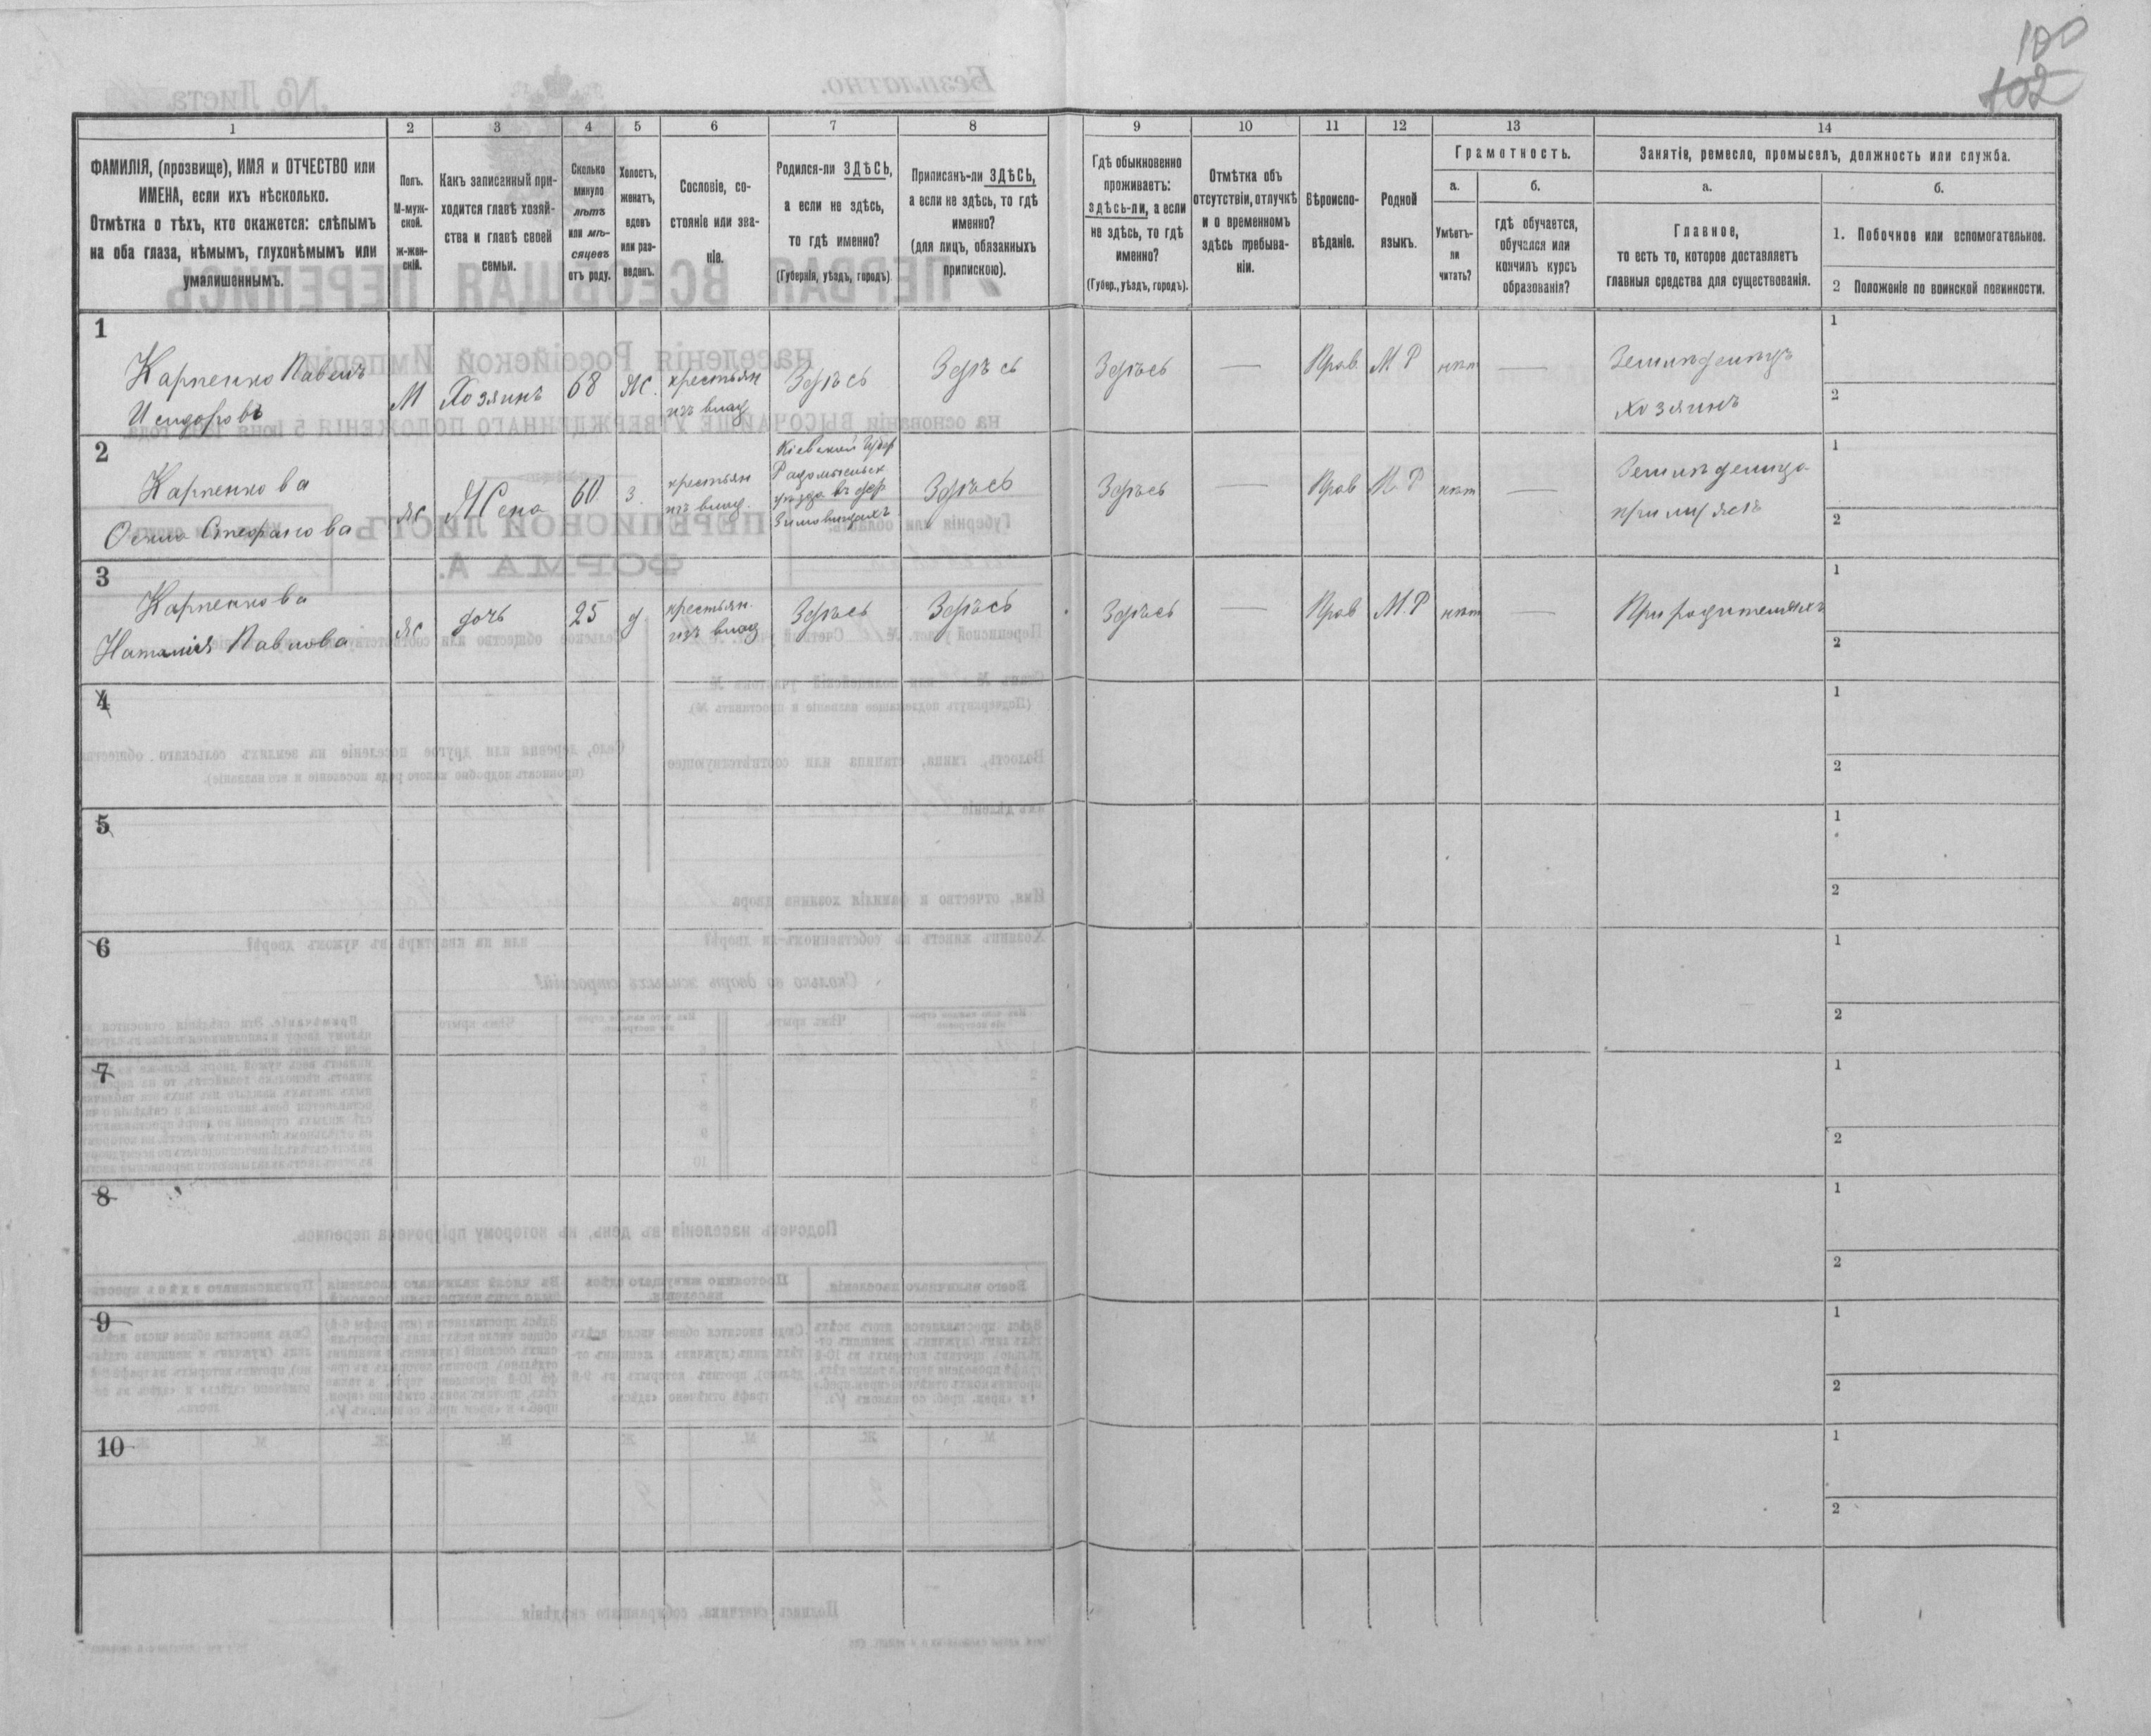 100
102
1
2
3
4
5
6
7
8
9
10
11
12
13
14
ФАМИЛІЯ, (прозвище), ИМЯ и ОТЧЕСТВО или
ИМЕНА, если ихъ нѣсколько.
Отмѣтка о тѣхъ, кто окажется: слѣпымъ
на оба глаза, нѣмымъ, глухонѣмымъ или
умалишеннымъ.
Полъ.
М-муж-
ской.
ж-жен-
скій.
Какъ записанный при-
ходится главѣ хозяй-
ства и главѣ своей
семьи.
Сколько
минуло
лѣтъ
или мѣ-
сяцевъ
отъ роду.
Холостъ,
женатъ,
вдовъ
или раз-
веденъ.
Сословіе, со-
стояніе или зва-
ніе.
Родился-ли ЗДѢСЬ,
а если не здѣсь,
то гдѣ именно?
(Губернія, уѣздъ, городъ)
Приписанъ-ли ЗДѢСЬ,
а если не здѣсь, то гдѣ
именно?
(для лицъ, обязанныхъ
припискою).
Гдѣ обыкновенно
проживаетъ:
здѣсь-ли, а если
не здѣсь, то гдѣ
именно?
(Губер., уѣздъ, городъ).
Отмѣтка объ
отсутствіи, отлучкѣ
и о временномъ
здѣсь пребыва-
ніи.
Вѣроиспо-
вѣданіе.
Родной
языкъ.
Грамотность.
а.
Умѣетъ-
ли
читать?
б.
гдѣ обучается,
обучался или
кончилъ курсъ
образованія?
Занятіе, ремесло, промыселъ, должность или служба.
а.
Главное,
то есть то, которое доставляетъ
главныя средства для существованія.
б.
1. Побочное или вспомогательное.
2 Положеніе по воинской повинности.
1
Карпенко Павелъ
Исидоровъ
М
Хозяинъ
68
Ж.
крестьян
изъ влад
Здѣсь
Здѣсь
Здѣсь
—
Прав
М Р
нѣт
—
Земледѣлецъ
хозяинъ
1
2
2
Карпенкова
Стефанова
Ж
Жена
60
З.
крестьян
изъ влад.
Кіевской губ
Радомысльск
уѣзда въ дер
Здѣсь
Здѣсь
—
Прав
М. Р
нѣт
—
1
2
3
Карпенкова
Наталия Павлова
Ж
дочь
25
д
крестьян.
изъ влад
Здѣсь
Здѣсь
Здѣсь
—
Прав
М. Р
нѣт
—
При родителяхъ
1
2
4
1
2
5
1
2
6
1
2
7
1
2
8
1
2
9
1
2
10
1
2